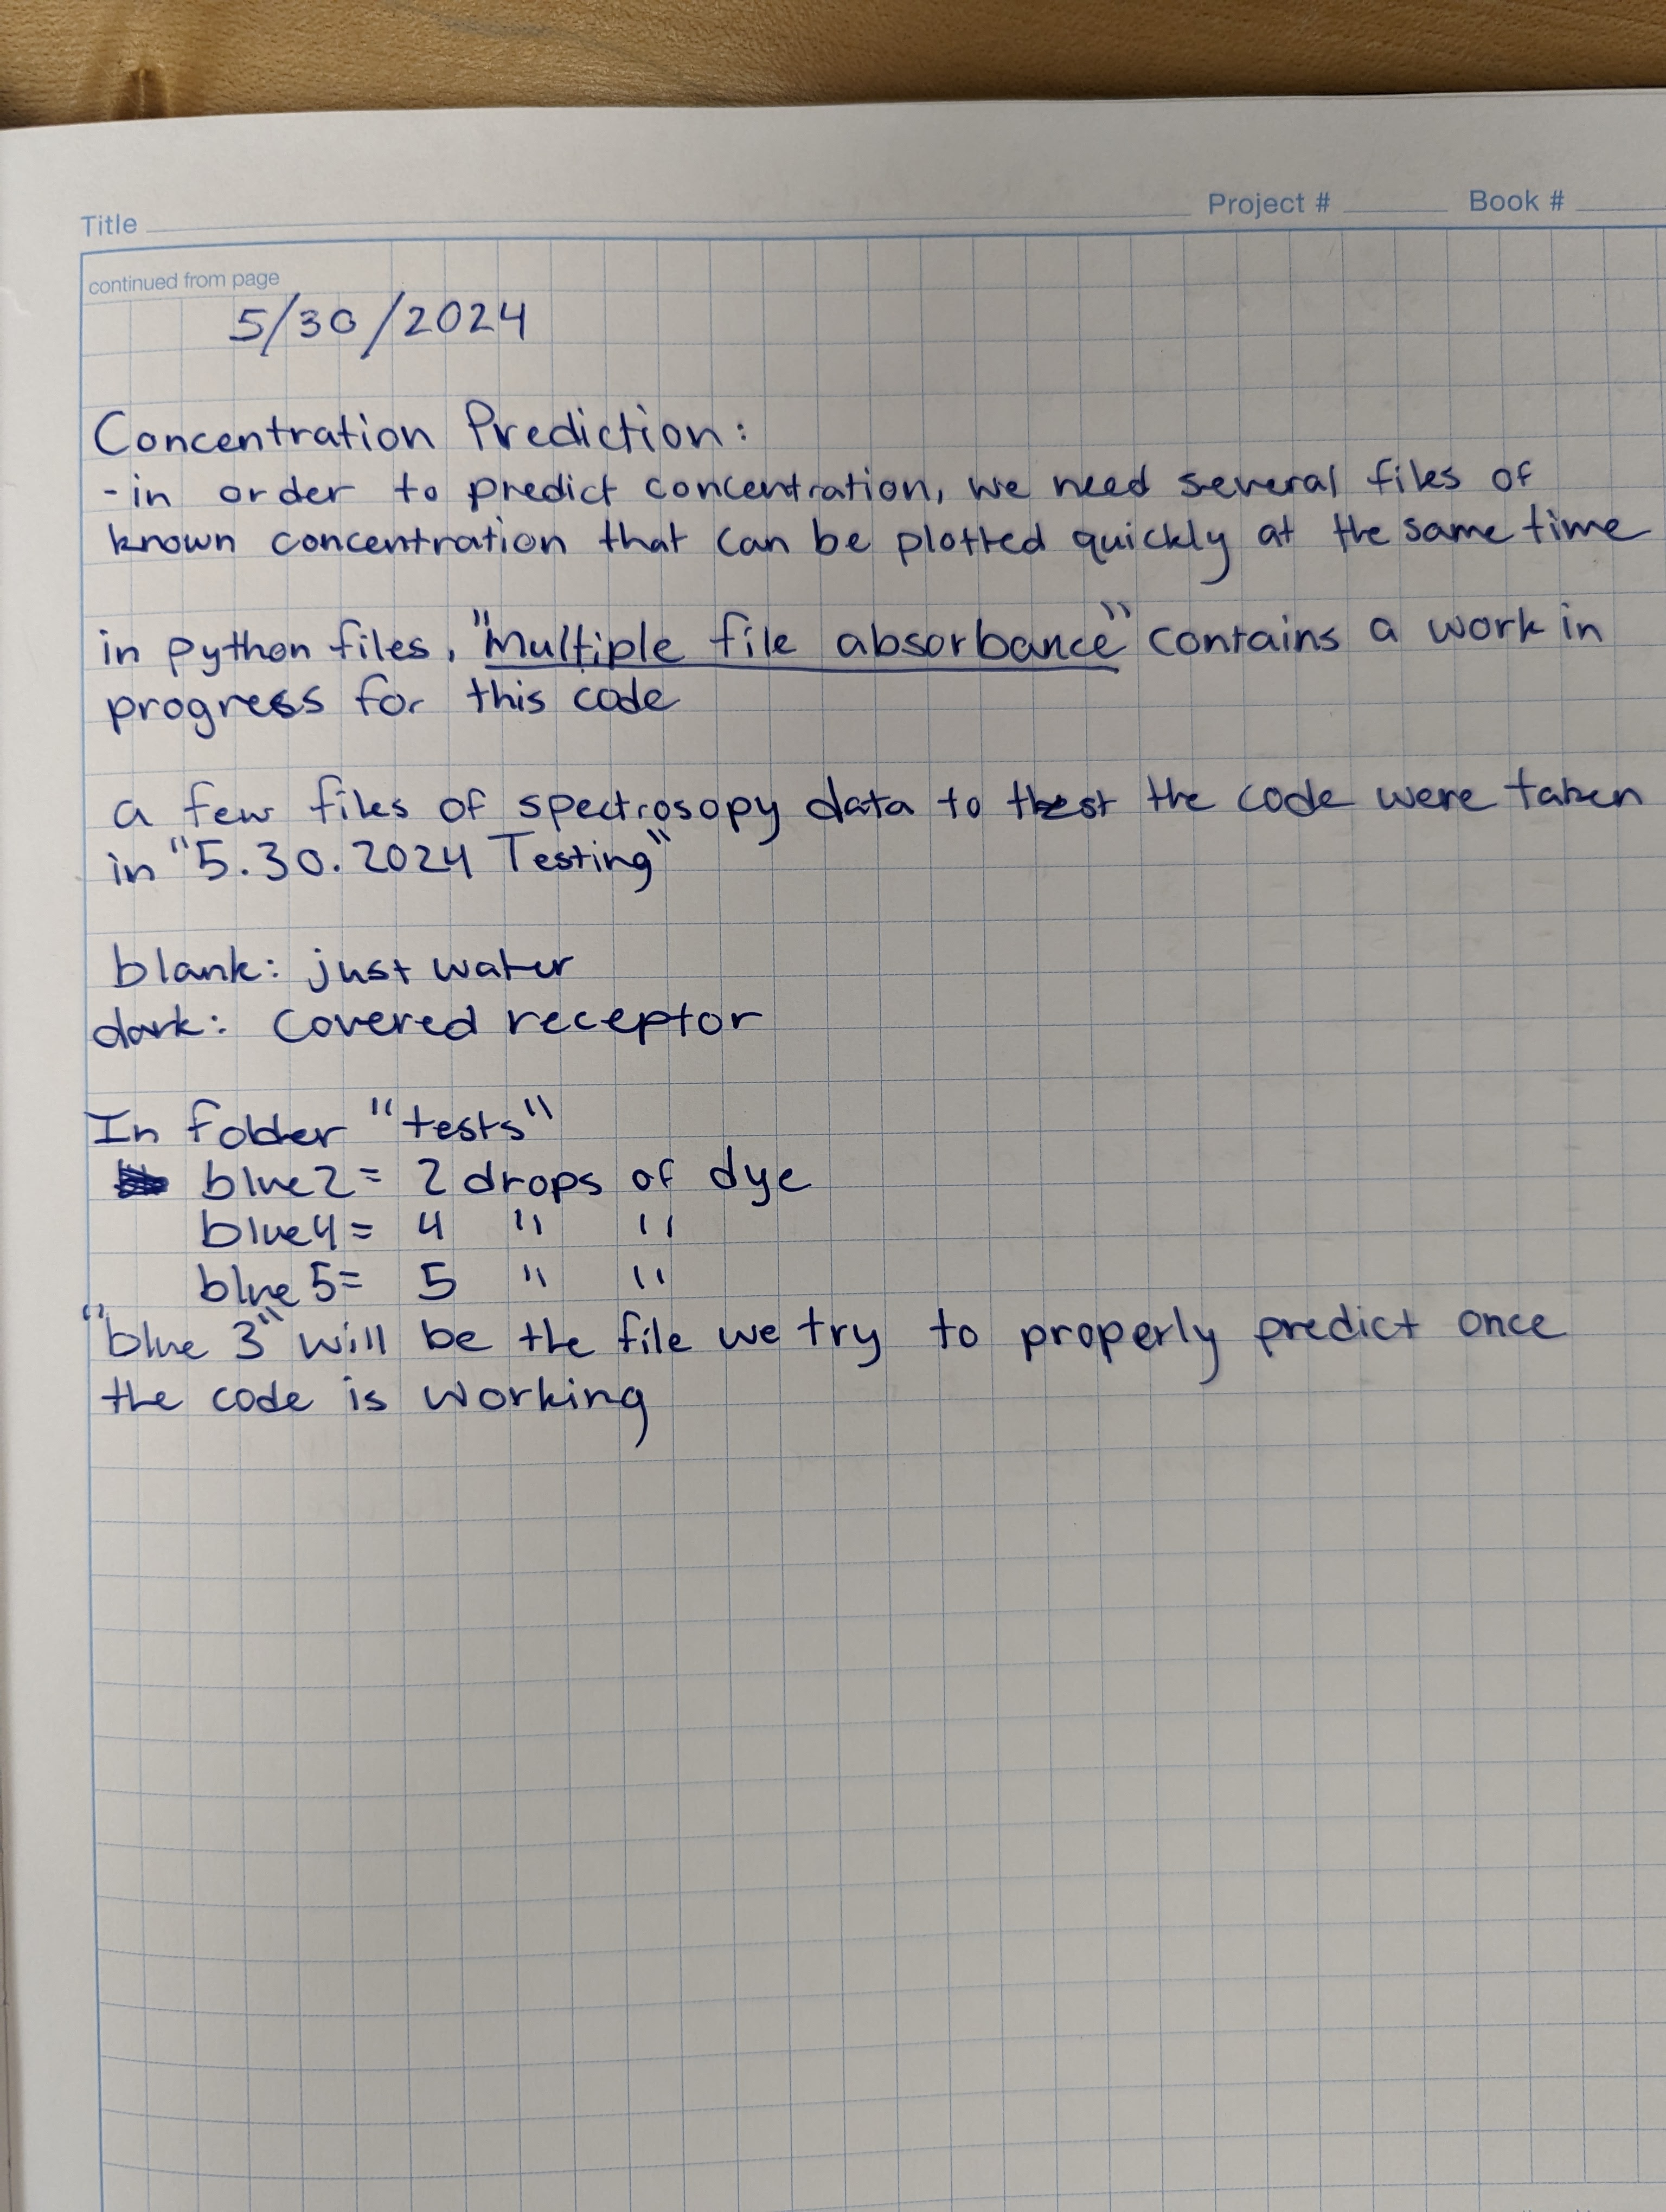 Title Project # Book #
continued from page
5/30/2024
Concentration Prediction:
- in order to predict concentration, we need several files of
known concentration that can be plotted quickly at the same time
in python files, "Multiple file absorbance" contains a work in
progress for this code
a few files of spectrosopy data to test the code were taken
in "5.30.2024 Testing"
blank: just water
dark: covered receptor
In folder "tests"
blue2 = 2 drops of dye
blue4 = 4 " "
blue5 = 5 " "
"blue 3" will be the file we try to properly predict once
the code is working